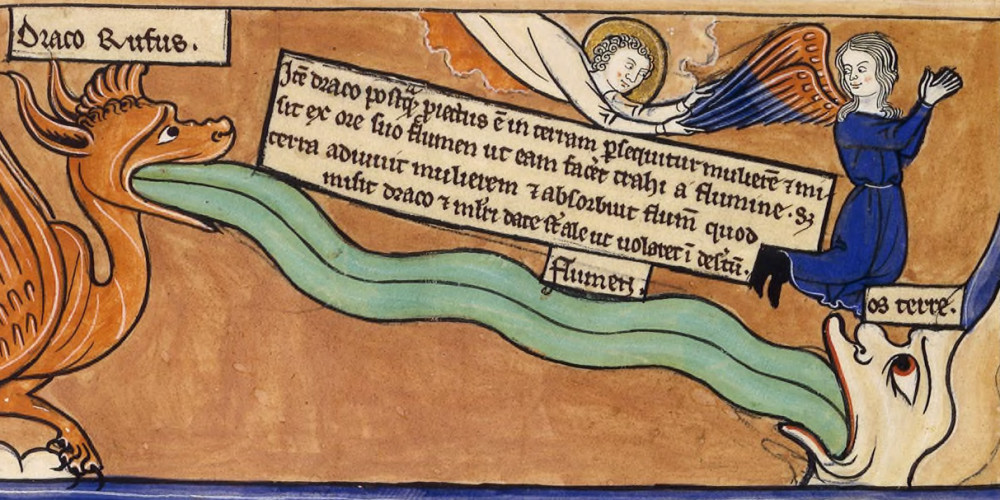 Draco Rufus.
Itē draco postq̄ꝫ p̄iectus ē in terram ꝑsequitur mulierē ⁊ mi-
sit ex ore suo flumen ut eam facẽt trahi a flumine. Sꝫ
terra adiuuit mulierem ⁊ absorbuit flum̄ quod
misit draco ⁊ ml̄ri date s̄t ale ut uolaret ī des̄tū.
flumen.
os terre.